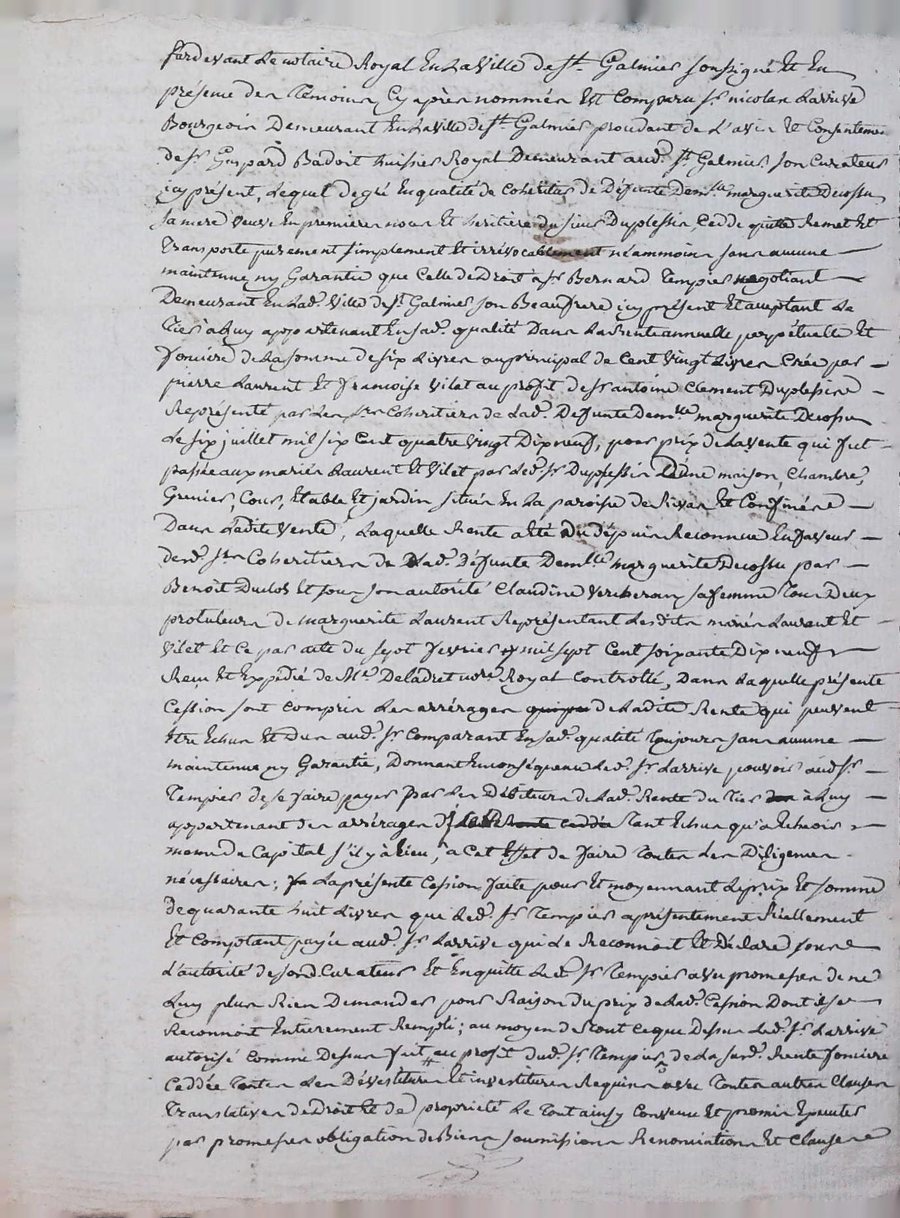 Pardevant Le notaire Royal En La Ville de St. Galmier soussigné Et En
présence des Temoins Cy après nommés Est Comparu Sr. nicolas Larrive
Bourgeois Demeurant En La ville de St. Galmier procedant de L'avis Et Consentement
de Sr. Gaspard Badoit huissier Royal Demeurant aud. St. Galmier son Curateur
icy présent, Lequel de gré En qualité de Coheritier de Défunte Demlle marguerite Decossu
sa mere veuve En premieres noces Et heritiere du sieur Duplessis, Cedde quitte Remet Et
Transporte purement simplement Et irrévocablement néammoins sans aucune
maintenue ny Garantie que Celle de Droit a Sr. Bernard Tempier negotiant
Demeurant En Lad. Ville de St. Galmier son Beaufrere icy présent Et acceptant Le
Tier à Luy appartenant En sad. qualité Dans La Rente annuelle perpétuelle Et
fonciere de La somme de six Livres au principal de Cent Vingt Livres Créé par
pierre Laurent Et francoise Vilet au profit de Sr. antoine Clement Duplessis
Représenté par Les Srs Coheritiers de Lad. Defunte Demlle marguerite Decossu
Le six juillet mil six Cent quatre Vingt Dix neuf, pour prix de La vente qui fut
passée aux mariés Laurent Et Vilet par Led. Sr. Duplessis D'une maison, Chambre,
Grenier, Cour, Etable Et jardin situés En La paroisse de Rivas Et Confinés
Dans Ladite Vente, Laquelle Rente a été Du depuis Reconnue En faveur
desd. Srs Coheritiers de Lad. Défunte Demlle marguerite Decossu par
Benoit Duclos Et sous son autorité Claudine Vercheran sa femme Tous Deux
protuteurs de marguerite Laurent Représentant Lesdits mariés Laurent Et
Vilet Et Ce par acte du sept fevrier mil sept Cent soixante Dix neuf
Recu Et Expedié de Me. Deladret nore Royal Controllé, Dans Laquelle présente
Cession sont Compris Les arrérages de Ladite Rente qui peuvent
être Echus Et Dus aud. Sr. Comparant En sad. qualité Toujours sans aucune
maintenue ny Garantie, Donnant En conséquence Led. Sr. Larrive pouvoir aud. Sr.
Tempier de se faire payer par Les Débiteurs de Lad. Rente du Tier à Luy
appartenant des arrérages Tant Echus qu'a Echeoir
meme du Capital s'il y à Lieu, a Cet Effet de faire Toutes Les Diligences
nécessaires; La présente Cession faite pour Et moyennant Le prix Et somme
De quarante huit Livres que Led. Sr. Tempier a présentement Réellement
Et Comptant payée aud. Sr. Larrive qui Le Reconnoit Et Déclare sous
L'autorité de sond. Curateur Et En quitte Led. Sr. Tempier avec promesses de ne
Luy plus Rien Demander pour Raison du prix de Lad. Cession Dont il se
Reconnoit Entierement Rempli; au moyen de tout Ce que Dessus Led. Sr. Larrive
autorisé Comme Dessus fait au profit dud. Sr. Tempier de La susd. Rente fonciere
Ceddée Toutes Les Dévestitures Et investitures Requises avec Toutes autres Clauses
Translatives de Droit Et de propriété Le Tout ainsy Convenu Et promis Executer
par promesses obligation de Biens soumissions Renonciations Et Clauses